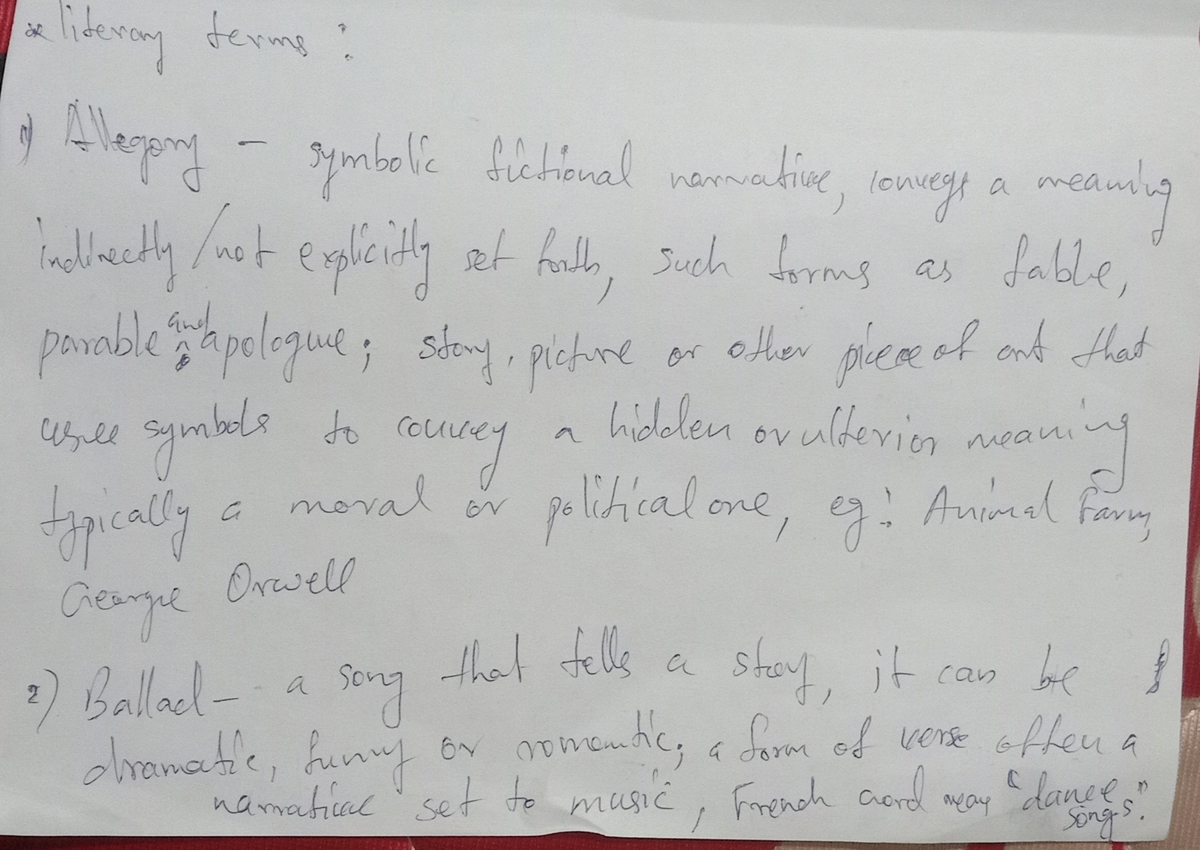 * literary terms :
1) Allegory - symbolic fictional narrative, conveys a meaning
indirectly / not explicitly set forth, such forms as fable,
parable and apologue; story, picture or other piece of art that
uses symbols to convey a hidden or ulterior meaning
typically a moral or political one, eg: Animal Farm,
George Orwell
2) Ballad - a song that tells a stoy, it can be
dramatic, funny or romantic; a form of verse often a
narrative set to music, French word "dance
songs".